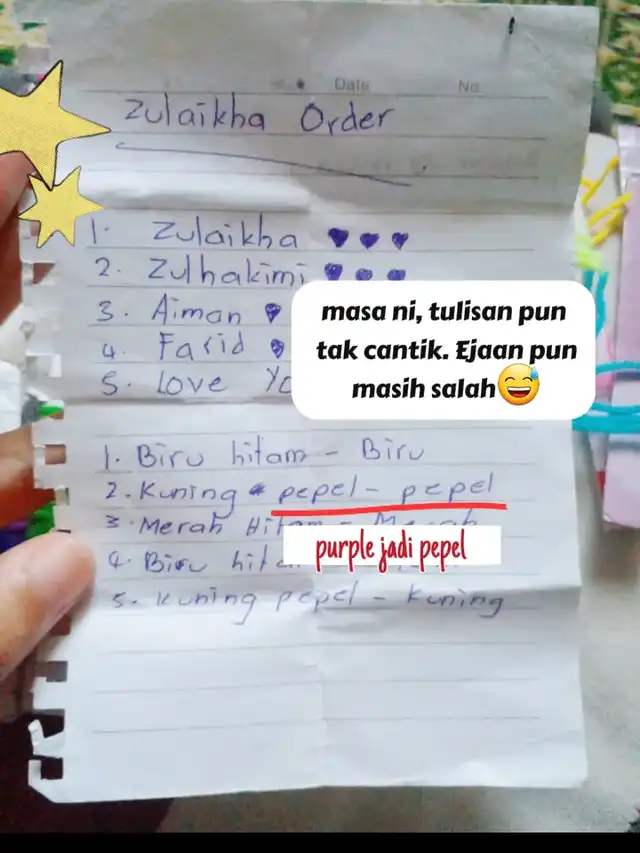 Date No.
Zulaikha Order
1. Zulaikha
2. Zulhakimi
3. Aiman
4. Farid
5. Love
masa ni, tulisan pun
tak cantik. Ejaan pun
masih salah😅
1. Biru hitam - Biru
2. Kuning pepel - pepel
3. Merah Hitam - Merah
purple jadi pepel
4. Biru
5. Kuning pepel - Kuning